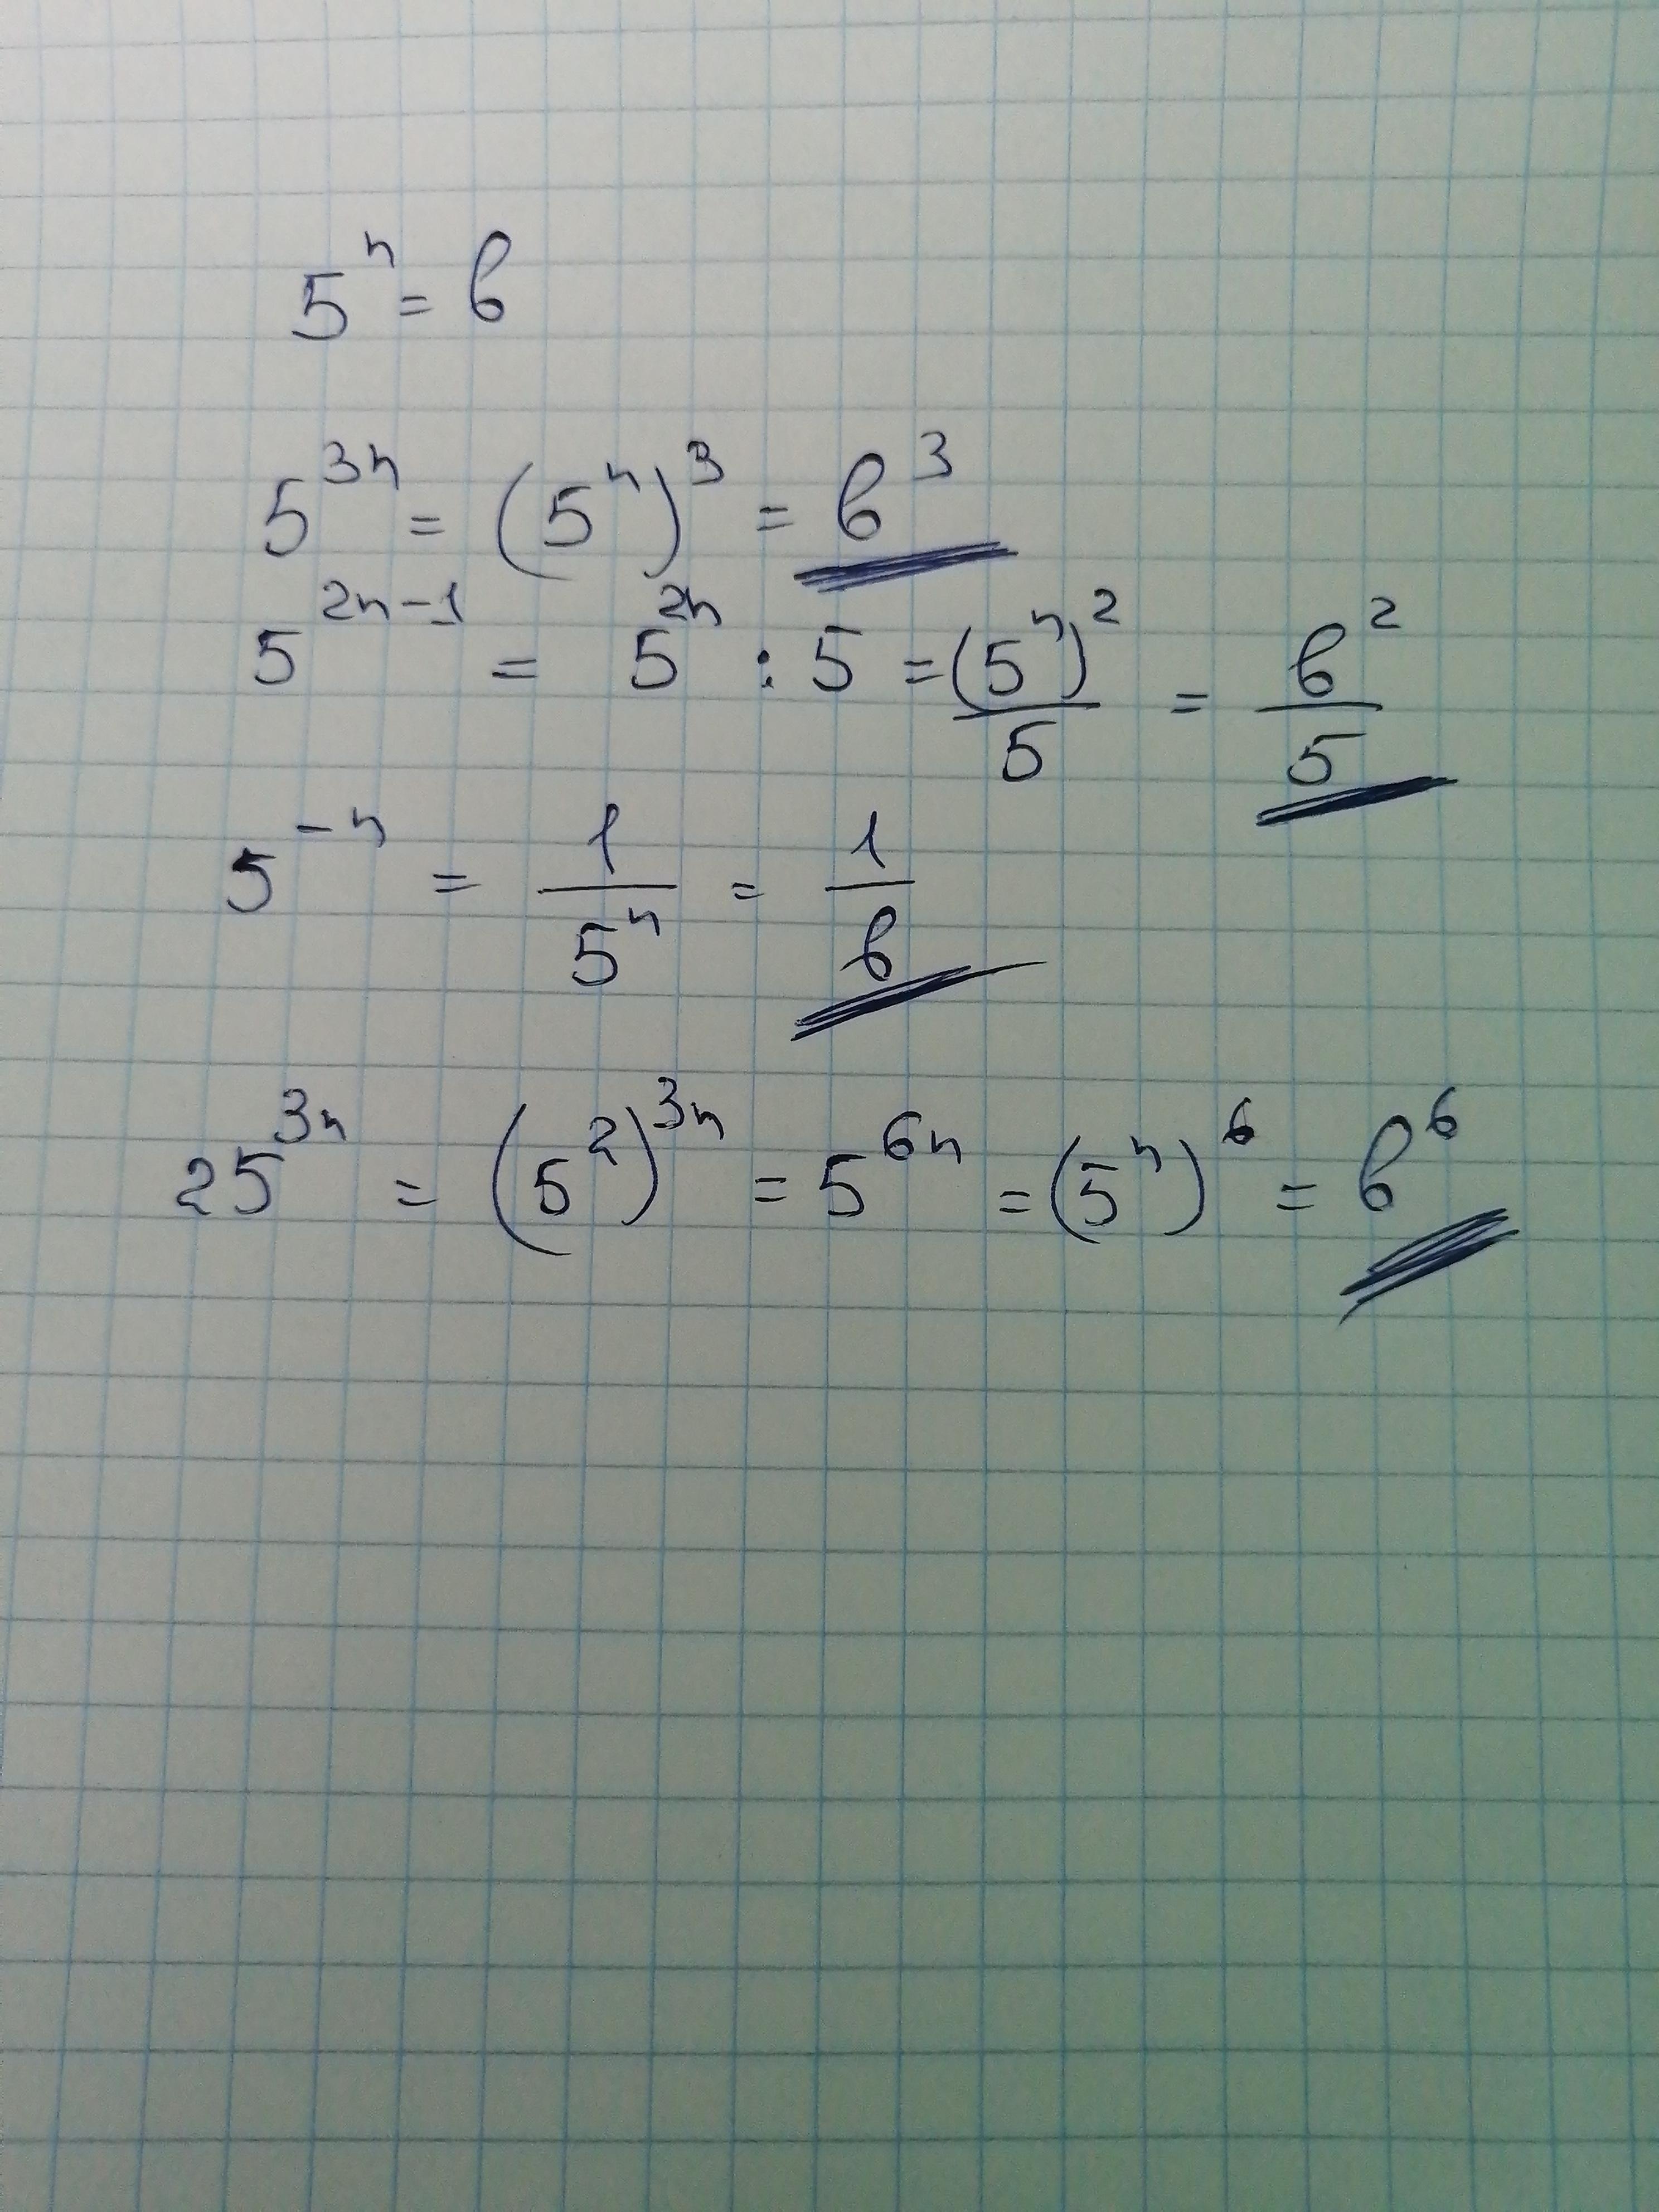 5^n = в
5^{3n} = (5^n)^3 = в^3
5^{2n-1} = 5^{2n} : 5 = (5^n)^2/5 = в^2/5
5^{-n} = 1/5^n = 1/в
25^{3n} = (5^2)^{3n} = 5^{6n} = (5^n)^6 = в^6